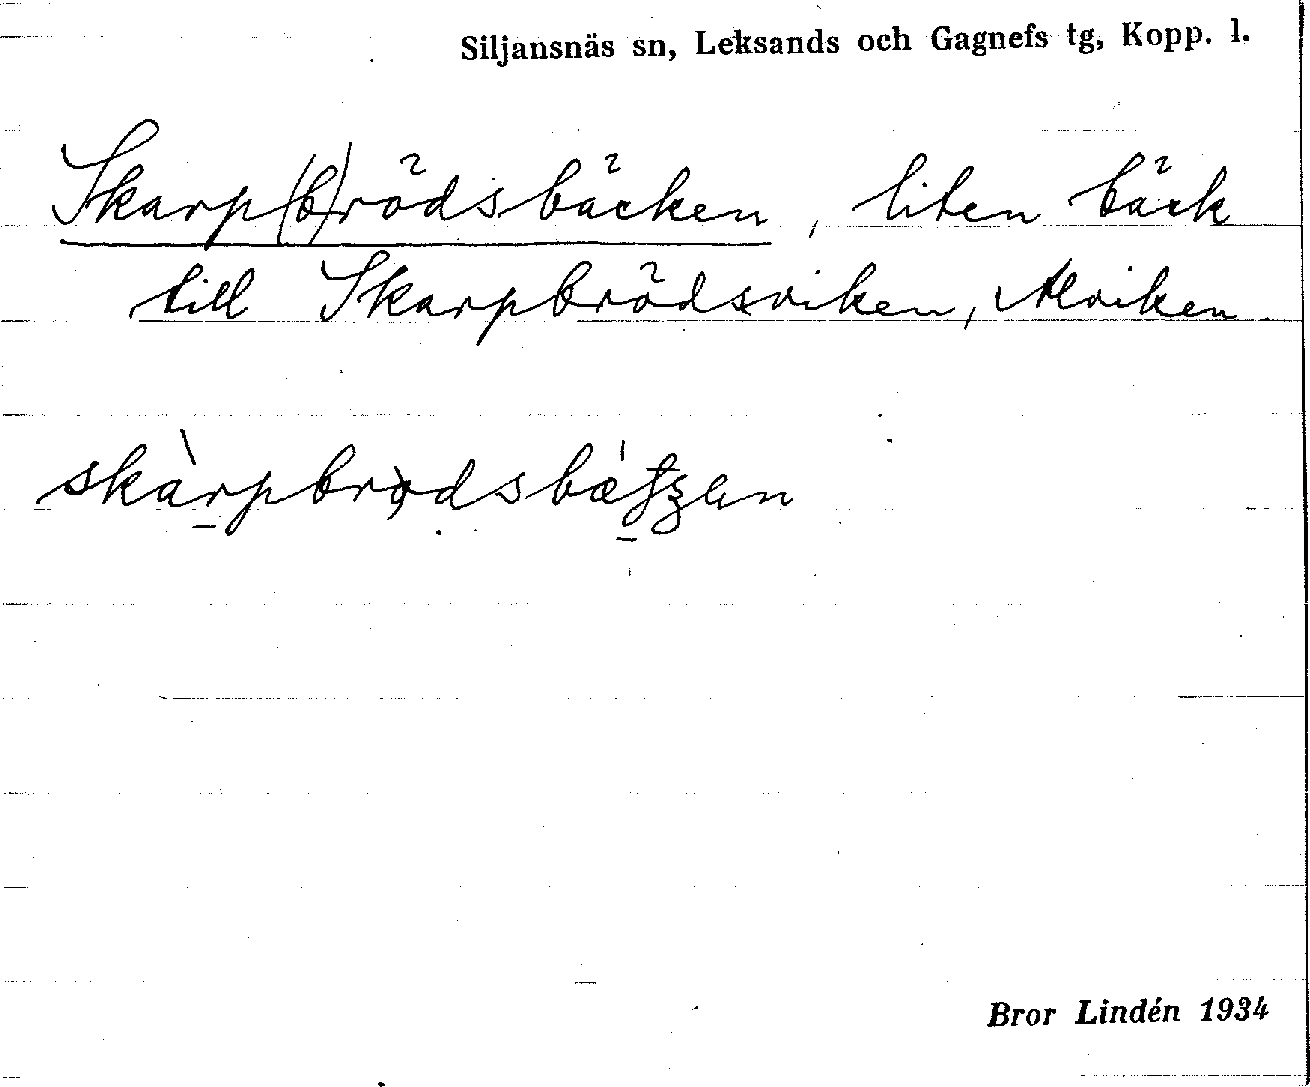 Siljansnäs sn, Leksands och Gagnefs tg, Kopp. l.
Skarp(b)rödsbäcken, liten bäck
till Skarpbrödsviken, Alviken
Bror Lindén 1934